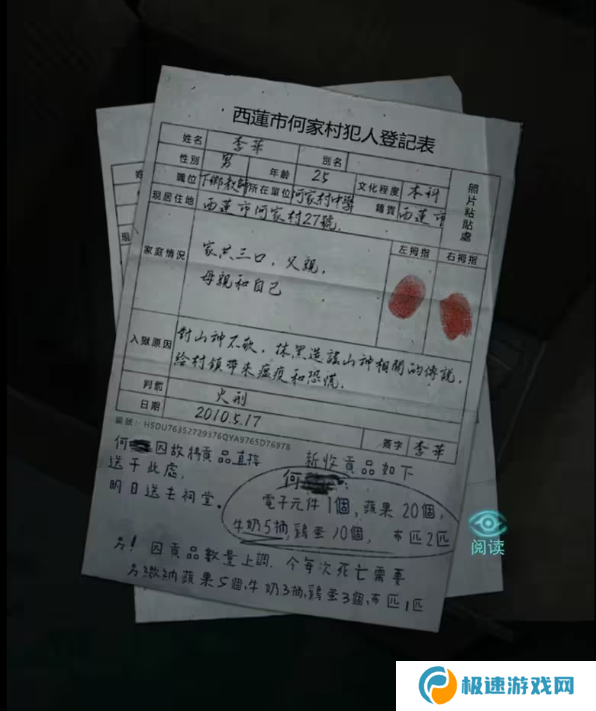 西蓮市何家村犯人登記表
姓名 李華 別名
性別 男 年齡 25 文化程度 本科
職位 下鄉教師 所在單位 何家村中學 籍貫 西蓮市
照片粘貼處
現居住地 西蓮市何家村27號
家庭情況 家共三口，父親，
母親和自己
左拇指 右拇指
入獄原因 對山神不敬，抹黑造謠山神相關的傳說，
給村鎮帶來瘟疫和恐慌。
判前 火刑
日期 2010.5.17 簽字 李華
編號：HSDU76352729376QYA9765D76978
何 因故將貢品直接
送于此處，
明日送去祠堂。
新收貢品如下
何
電子元件1個，蘋果20個，
牛奶5抽，鷄蛋10個，布匹2匹
另！因貢品數量上調，今每次死亡需要
另繳納蘋果5個，牛奶3抽，鷄蛋3個，布匹1匹
阅读
极速游戏网